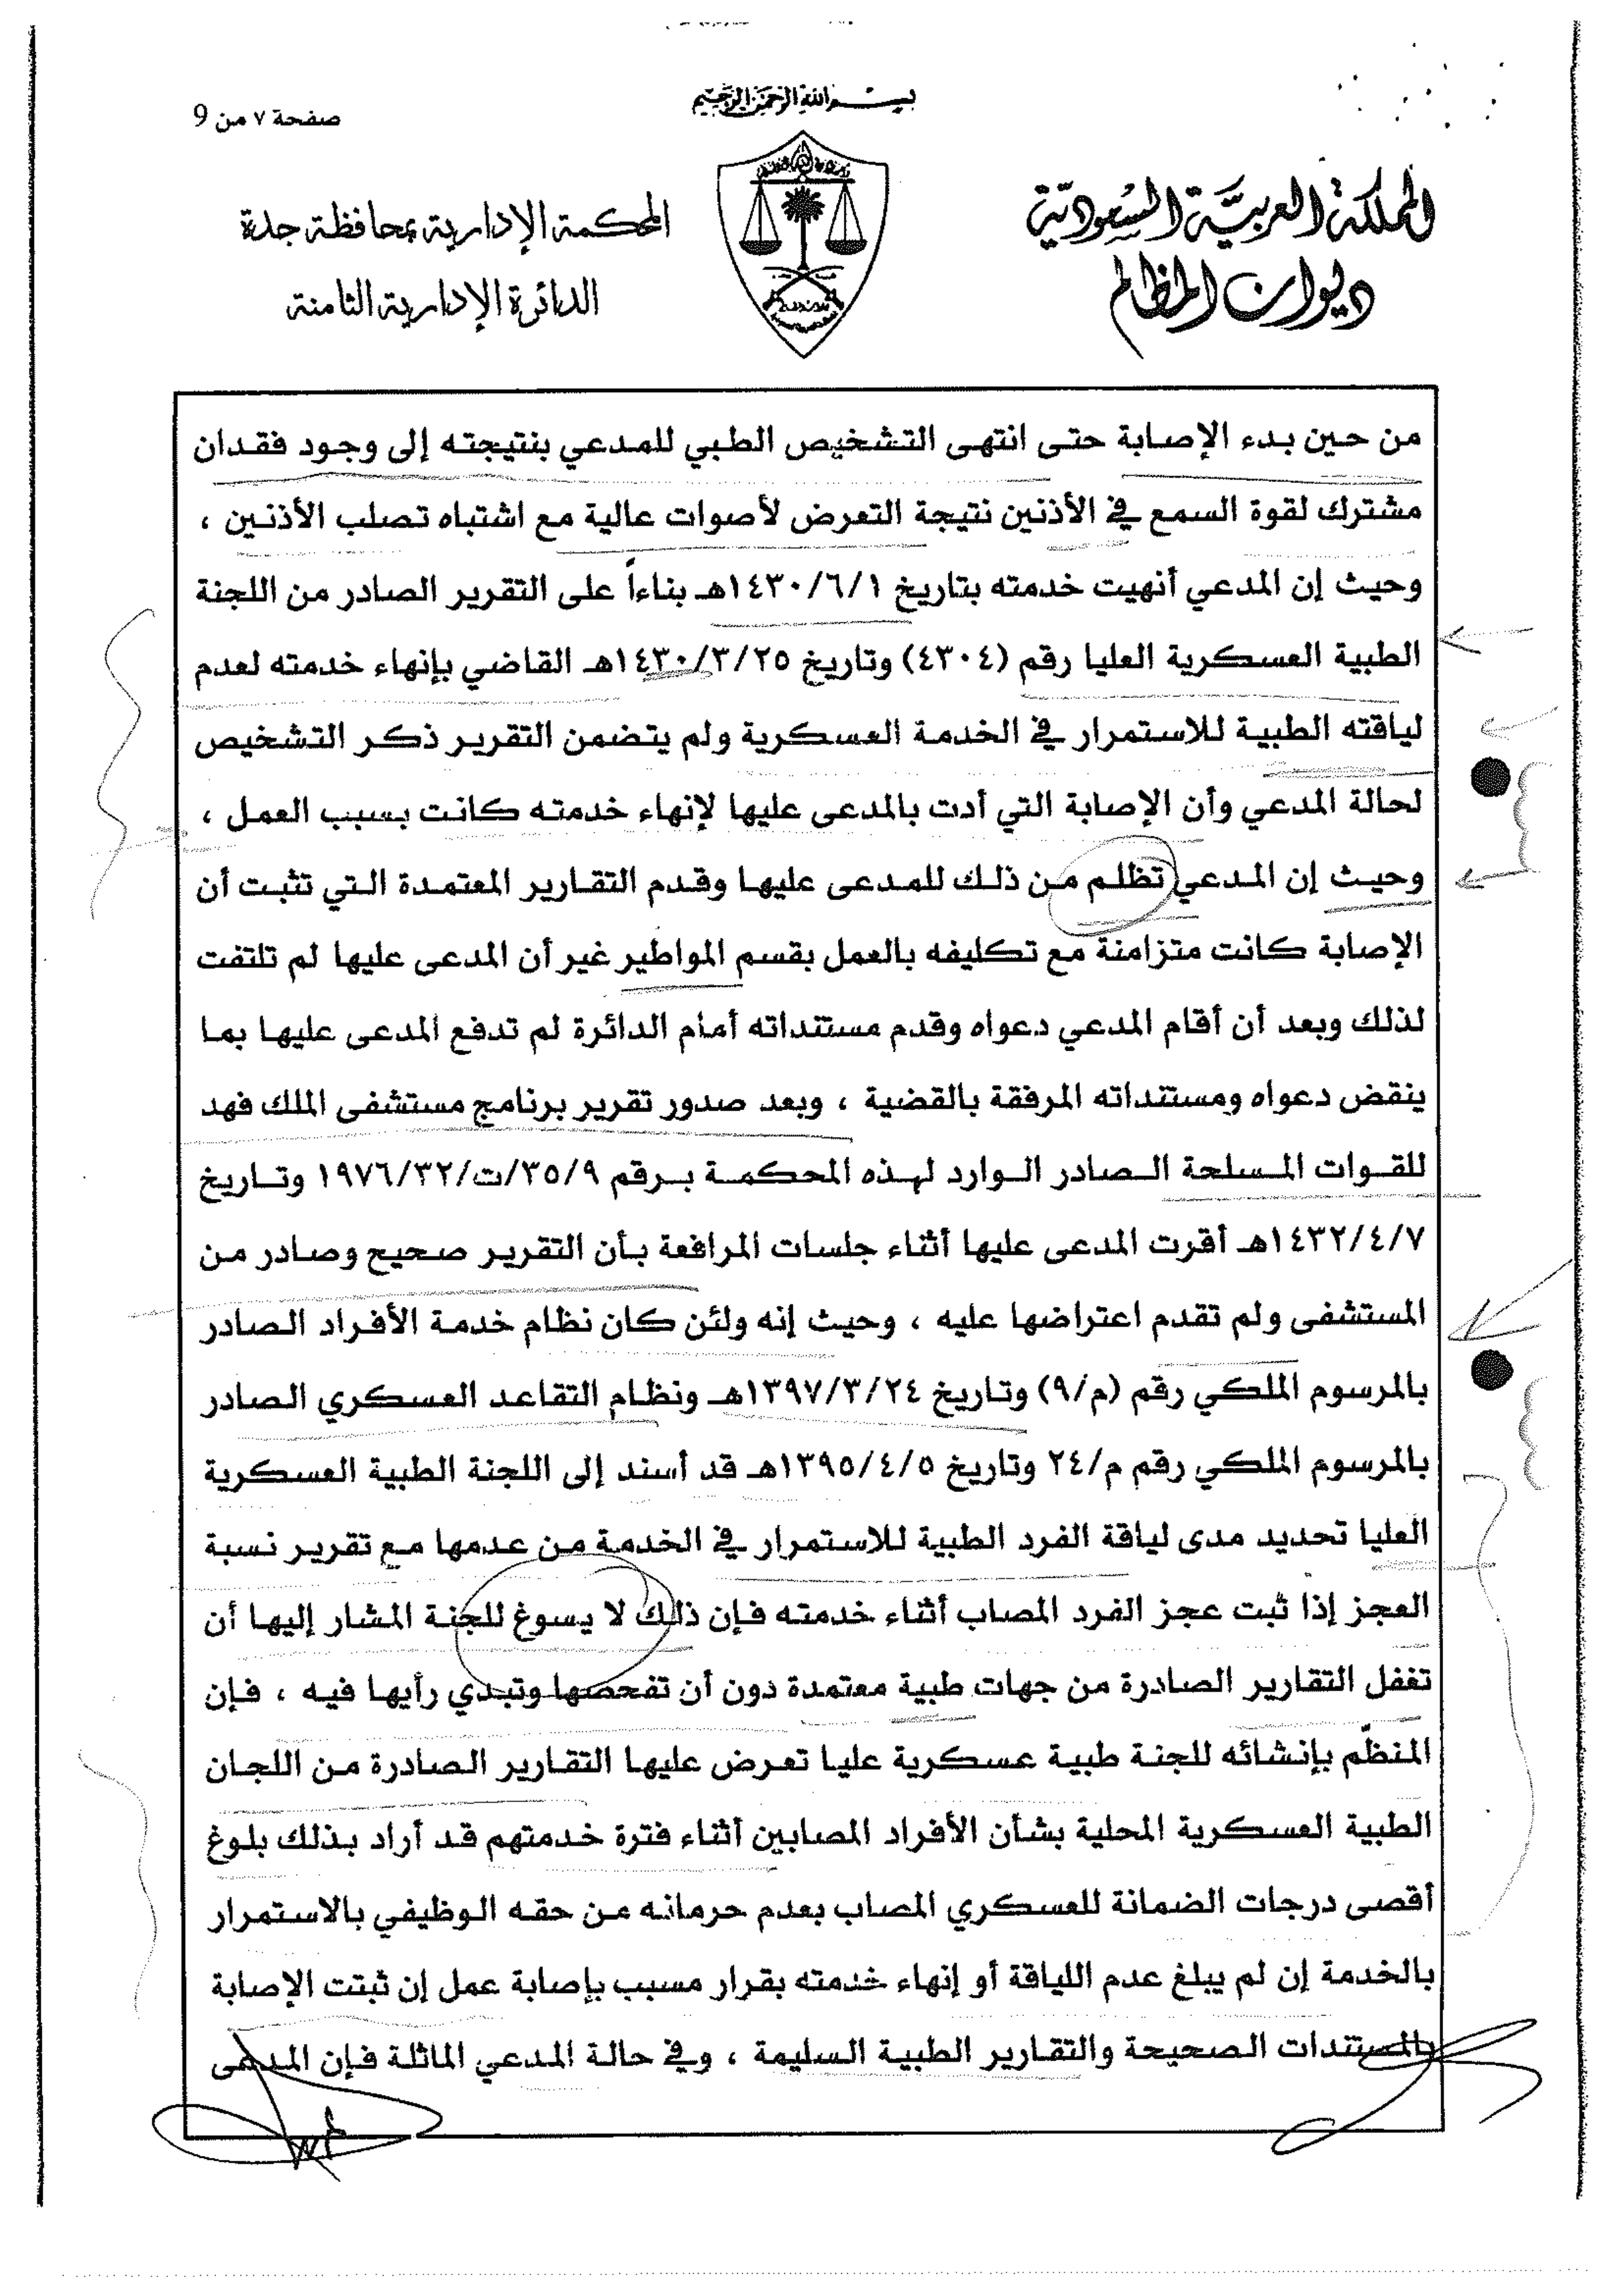 بسم الله الرحمن الرحيم
صفحة ٧ من 9
المملكة العربية السعودية
ديوان المظالم
المحكمة الإدارية بمحافظة جدة
الدائرة الإدارية الثامنة
من حين بدء الإصابة حتى انتهى التشخيص الطبي للمدعي بنتيجته إلى وجود فقدان
مشترك لقوة السمع في الأذنين نتيجة التعرض لأصوات عالية مع اشتباه تصلب الأذنين ،
وحيث إن المدعي أنهيت خدمته بتاريخ ١٤٣٠/٦/١هـ بناءاً على التقرير الصادر من اللجنة
الطبية العسكرية العليا رقم (٤٣٠٤) وتاريخ ١٤٣٠/٣/٢٥هـ القاضي بإنهاء خدمته لعدم
لياقته الطبية للاستمرار في الخدمة العسكرية ولم يتضمن التقرير ذكر التشخيص
لحالة المدعي وأن الإصابة التي أدت بالمدعى عليها لإنهاء خدمته كانت بسبب العمل ،
وحيث إن المدعي تظلم من ذلك للمدعى عليها وقدم التقارير المعتمدة التي تثبت أن
الإصابة كانت متزامنة مع تكليفه بالعمل بقسم المواطير غير أن المدعى عليها لم تلتفت
لذلك وبعد أن أقام المدعي دعواه وقدم مستنداته أمام الدائرة لم تدفع المدعى عليها بما
ينقض دعواه ومستنداته المرفقة بالقضية ، وبعد صدور تقرير برنامج مستشفى الملك فهد
للقوات المسلحة الصادر الوارد لهذه المحكمة برقم ٣٥/٩/ت/١٩٧٦/٣٢ وتاريخ
١٤٣٢/٤/٧هـ أقرت المدعى عليها أثناء جلسات المرافعة بأن التقرير صحيح وصادر من
المستشفى ولم تقدم اعتراضها عليه ، وحيث إنه ولئن كان نظام خدمة الأفراد الصادر
بالمرسوم الملكي رقم (م/٩) وتاريخ ١٣٩٧/٣/٢٤هـ ونظام التقاعد العسكري الصادر
بالمرسوم الملكي رقم م/٢٤ وتاريخ ١٣٩٥/٤/٥هـ قد أسند إلى اللجنة الطبية العسكرية
العليا تحديد مدى لياقة الفرد الطبية للاستمرار في الخدمة من عدمها مع تقرير نسبة
العجز إذا ثبت عجز الفرد المصاب أثناء خدمته فإن ذلك لا يسوغ للجنة المشار إليها أن
تغفل التقارير الصادرة من جهات طبية معتمدة دون أن تفحصها وتبدي رأيها فيه ، فإن
المنظّم بإنشائه للجنة طبية عسكرية عليا تعرض عليها التقارير الصادرة من اللجان
الطبية العسكرية المحلية بشأن الأفراد المصابين أثناء فترة خدمتهم قد أراد بذلك بلوغ
أقصى درجات الضمانة للعسكري المصاب بعدم حرمانه من حقه الوظيفي بالاستمرار
بالخدمة إن لم يبلغ عدم اللياقة أو إنهاء خدمته بقرار مسبب بإصابة عمل إن ثبتت الإصابة
بالمستندات الصحيحة والتقارير الطبية السليمة ، وفي حالة المدعي الماثلة فإن المدعى